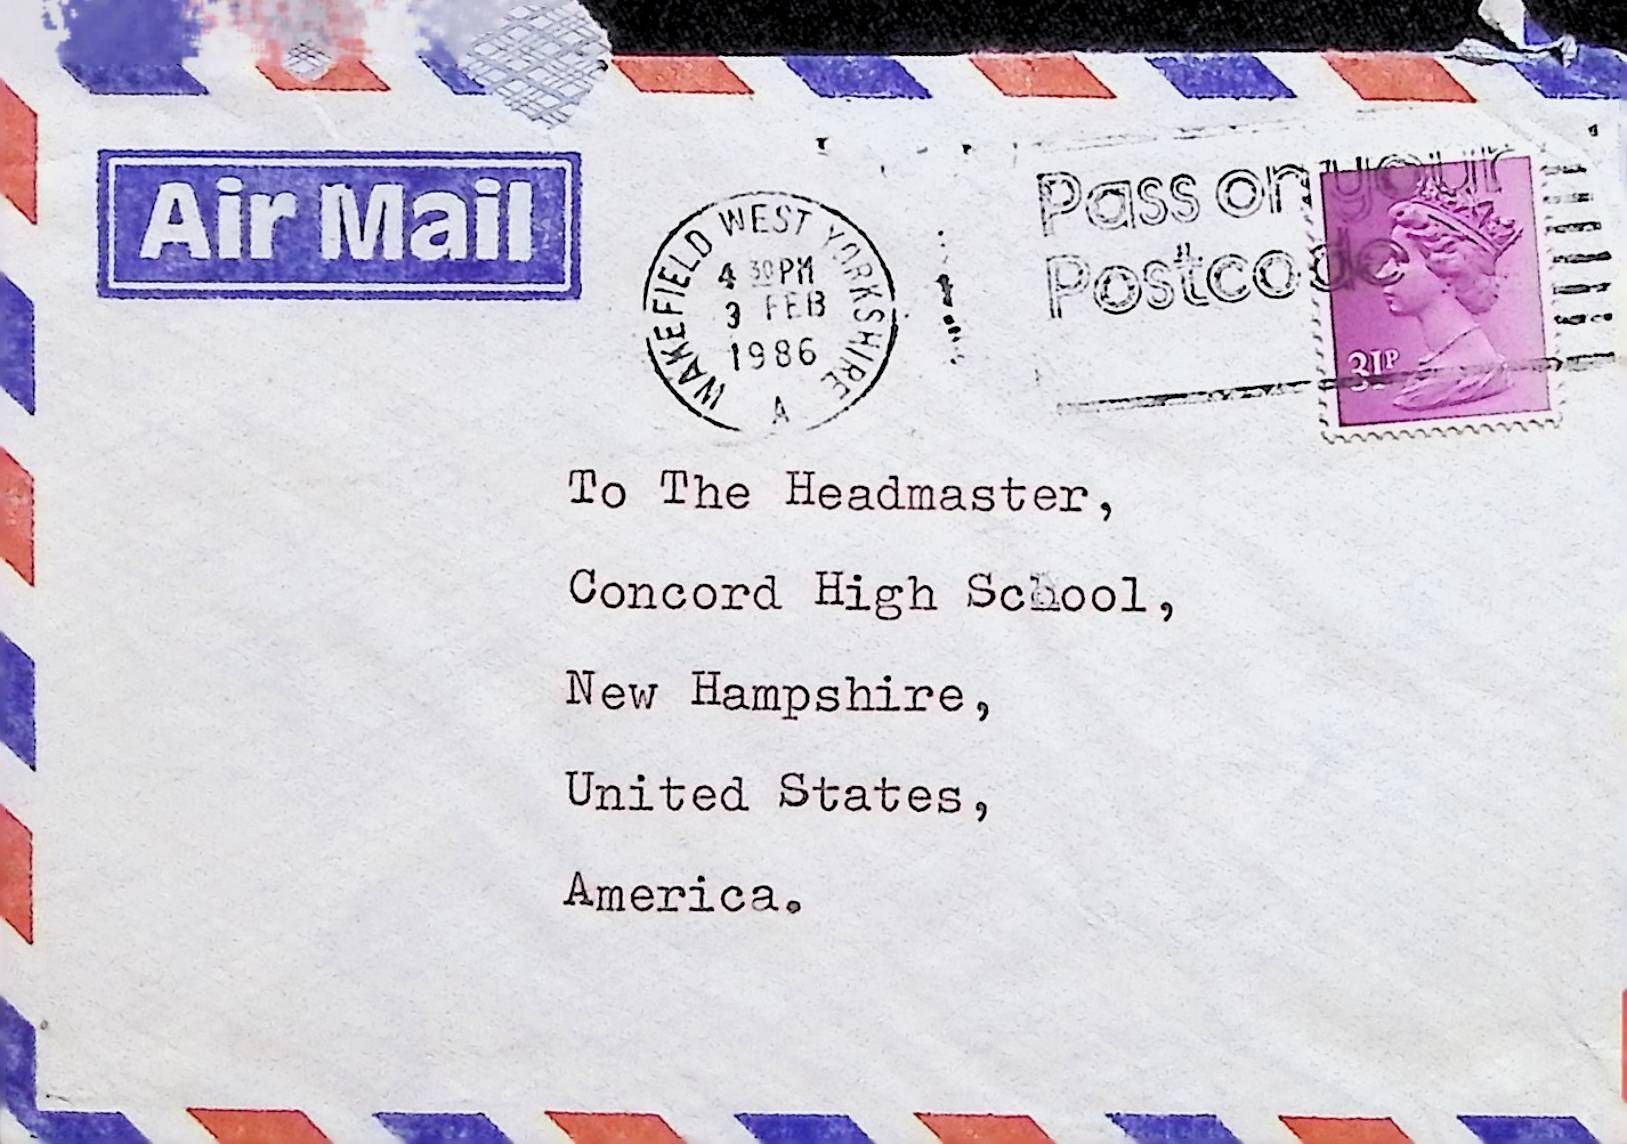 Air Mail
WAKEFIELD WEST YORKSHIRE
4 30PM
3 FEB
1986
A
Pass on your
Postcode
31P
To The Headmaster,
Concord High School,
New Hampshire,
United States,
America.